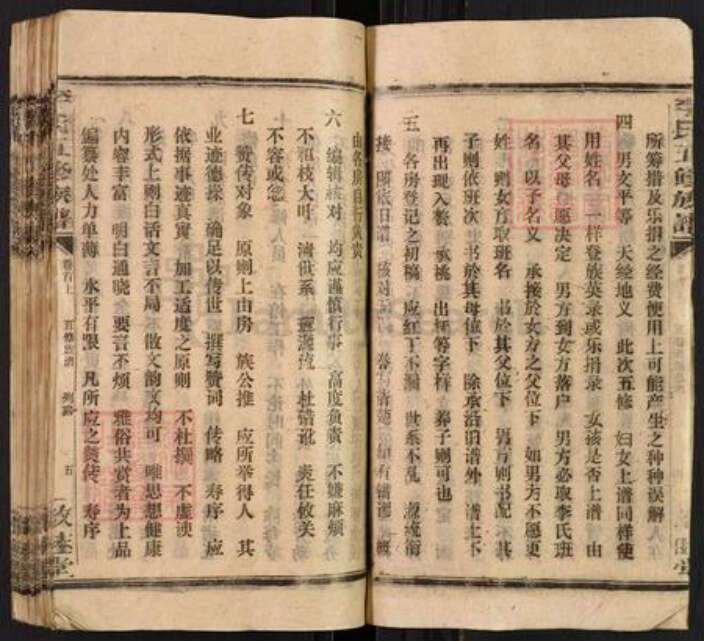 李氏五修族谱
所筹措及乐捐之经费使用上可能产生之种种误解
四 男女平等 天经地义 此次五修 妇女上谱同样使
用姓名 一样登族英录或乐捐录 女孩是否上谱 由
其父母自愿决定 男方到女方落户 男方必取李氏班
名 以子名义 承接於女方之父位下 如男方不愿更
姓 则女方取班名 书於其父位下 男方则书配 其
子则依班次 书於其母位下 除承沿旧谱外 谱上不
再出现入赘 承祧 出抚等字样 养子则可也
五 各房登记之初稿 应红丁不漏 世系不乱 源流清
接 旧底日谱 核对无
由各房自行负责
六 编辑核对 均应谨慎行事 高度负责 不嫌麻烦
不粗枝大叶 清世系 杜错讹 责任攸关
不容或怠
七 赞传对象 原则上由房 族公推 应所举得人 其
业迹德操 确足以传世 撰写赞词 传略 寿序 应
依据事迹真实 加工适度之原则 不杜撰 不虚谀
形式上则白话文言不局 散文韵文均可 唯思想健康
内容丰富 明白通晓 要言不烦 雅俗共赏者为上品
编纂处人力单薄 水平有限 凡所应之赞传 寿序
李氏五修族谱
卷首上
五